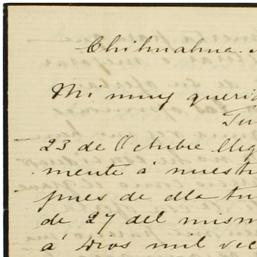 Chihuahua.
Mi muy queri
Tu
23 de Octubre lleg
mente á nuestr
pues de dla tu
de 27 del mism
á Dios mil vec